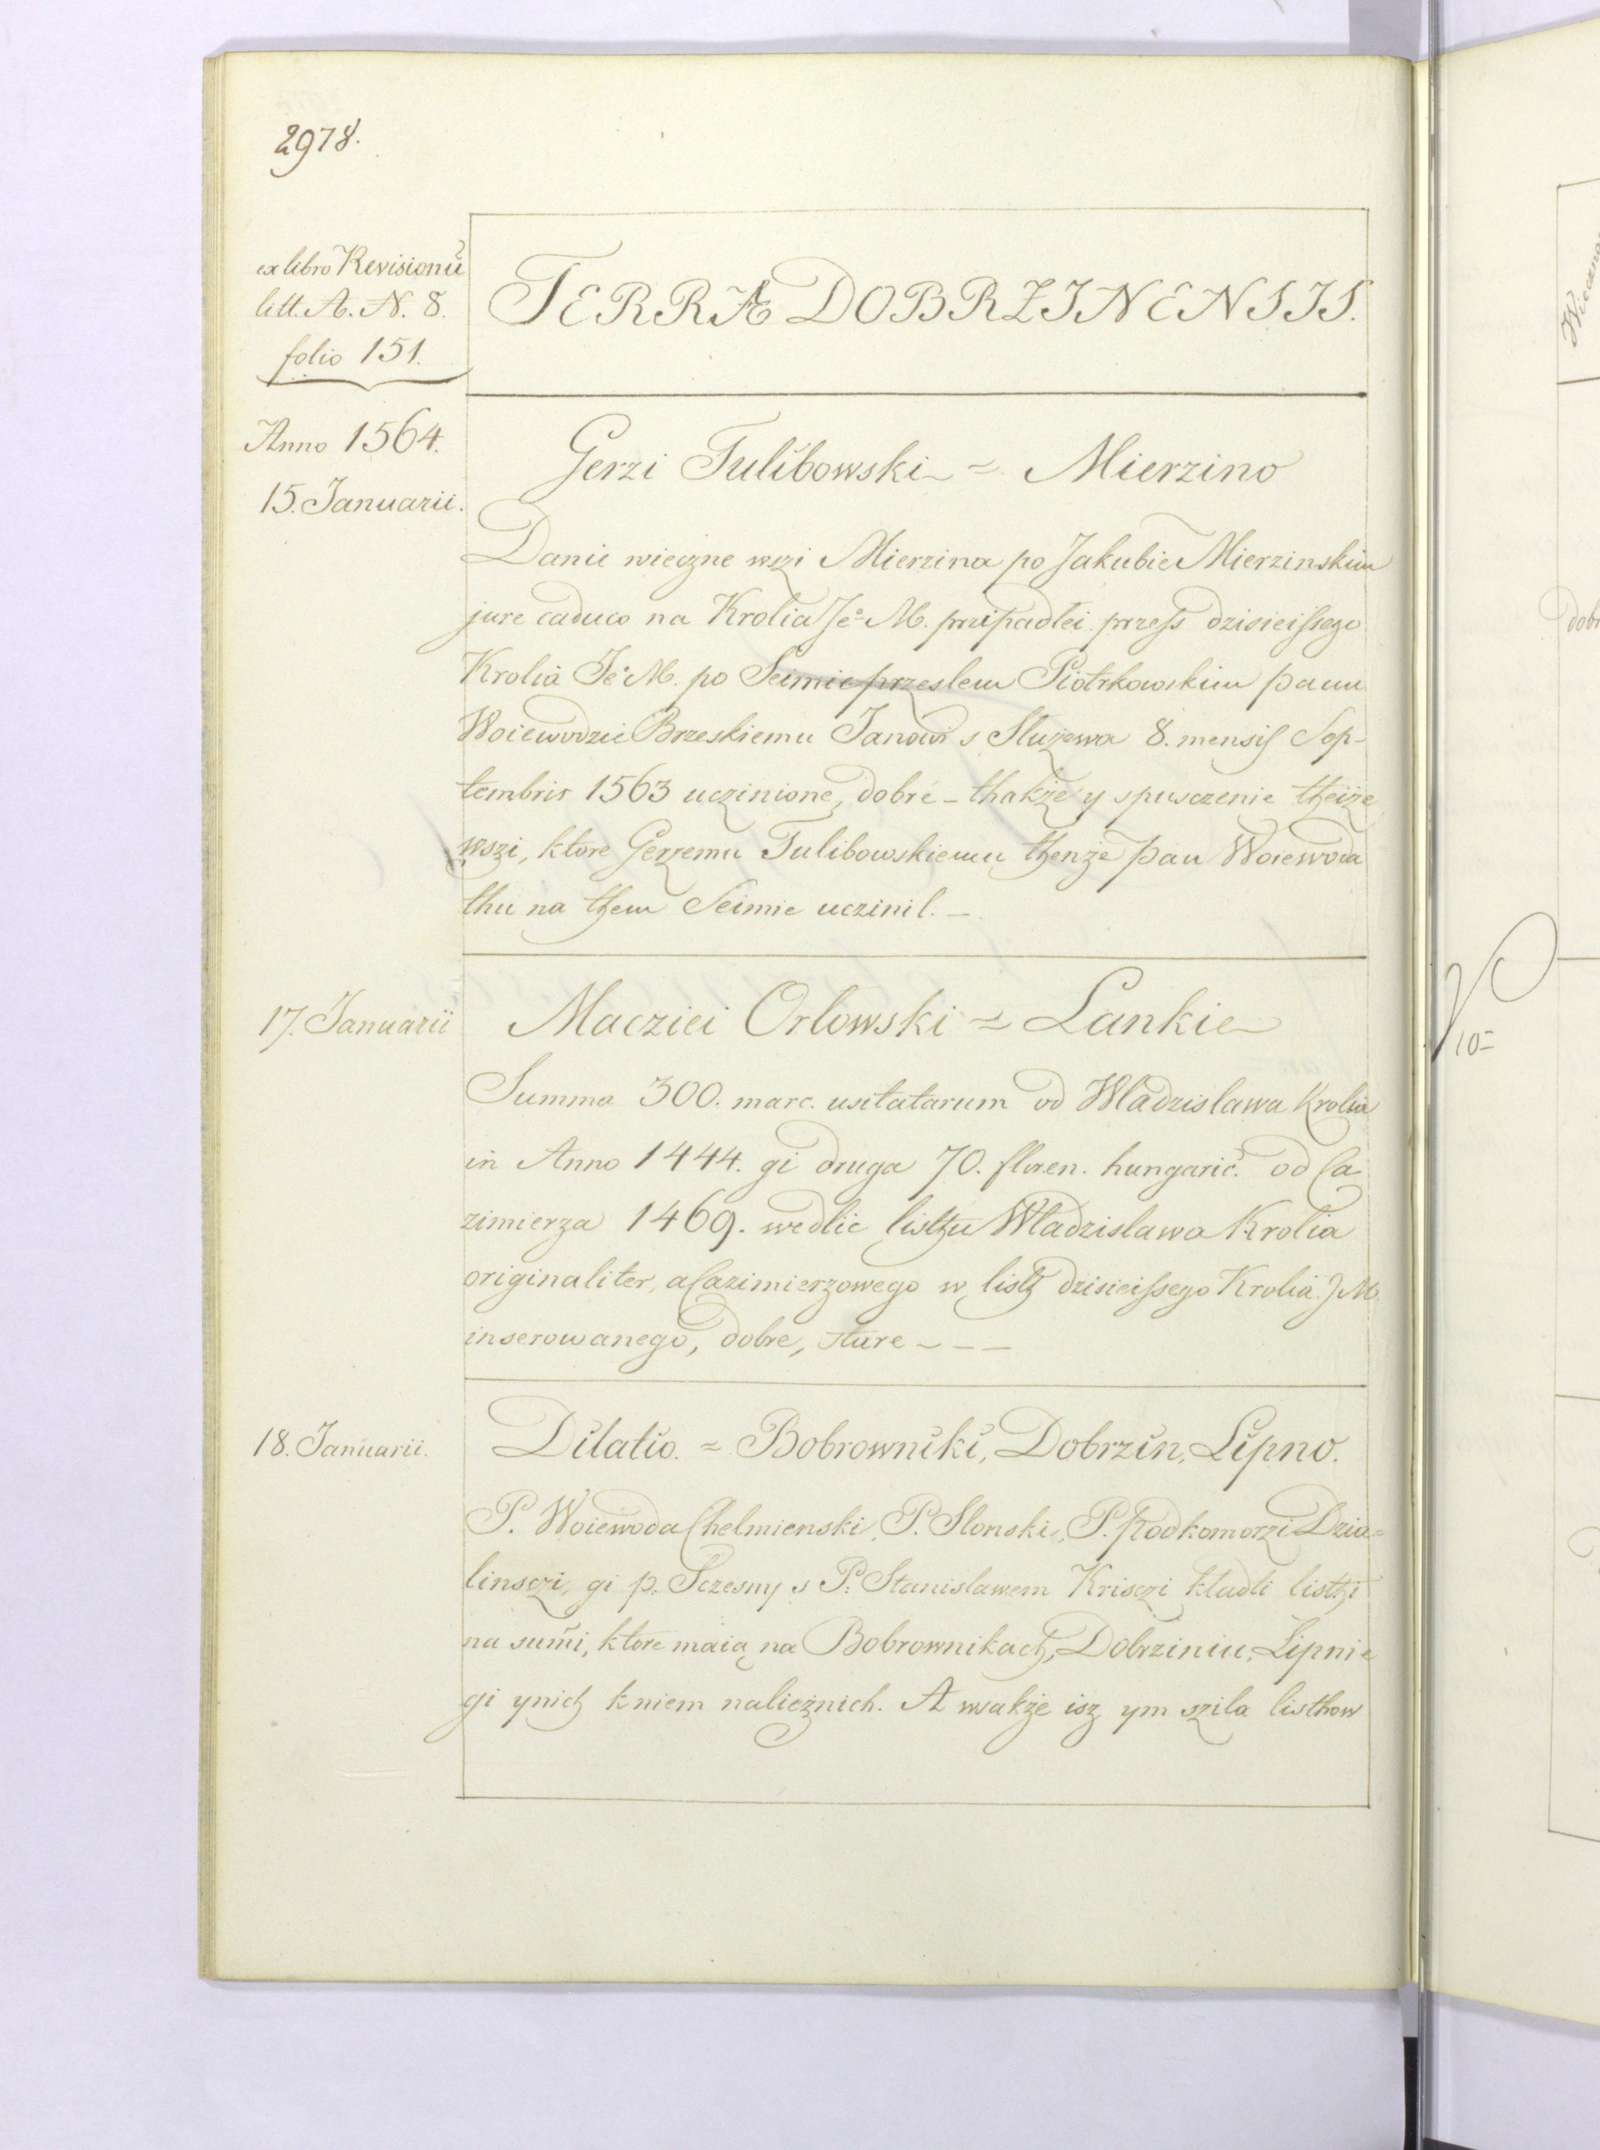 2978.
ex libro Revisionū
litt. A. N. 8.
folio 151.
TERRÆ DOBRZINENSIS.
Anno 1564.
15. Januarii.
Gerzi Tulibowski ~ Mierzino
Danie wieczne wszi Mierzina po Jakubie Mierzinskim
jure caduco na Krolia Je° M. przipadłei przess dzisieissego
Krolia Je° M. po Seimie przeslem Piotrkowskim panu
Woiewodzie Brzeskiemu Janowi s Służewa 8. mensis Sep-
tembris 1563 uczinione, dobre - thakże y spusczenie theiże
wszi, ktore Gerzemu Tulibowskiemu thenże pan Woiewoda
thu na them Seimie uczinil. -
17. Januarii
Macziei Orlowski ~ Lankie
Summa 300. marc. usitatarum od Wladzislawa Krolia
in Anno 1444. gi druga 70. floren. hungaric. od Ca
zimierza 1469. wedlie listhu Wladzislawa Krolia
originaliter, a Cazimierzowego w listh dzisieissego Krolia J M.
inserowanego, dobre, sture - - -
18. Januarii.
Dilatio. ~ Bobrowniki, Dobrzin, Lipno.
P. Woiewoda Chelmienski, P. Slonski, P. Podkomorzi Dzia-
linsczi, gi p. Sczesny s P. Stanislawem Krisczi kładli listhi
na sum̄i, ktore maią na Bobrownikach, Dobrziniu, Lipnie
gi ynich k niem należnich. A wsakże isz ym szila listhow
10=